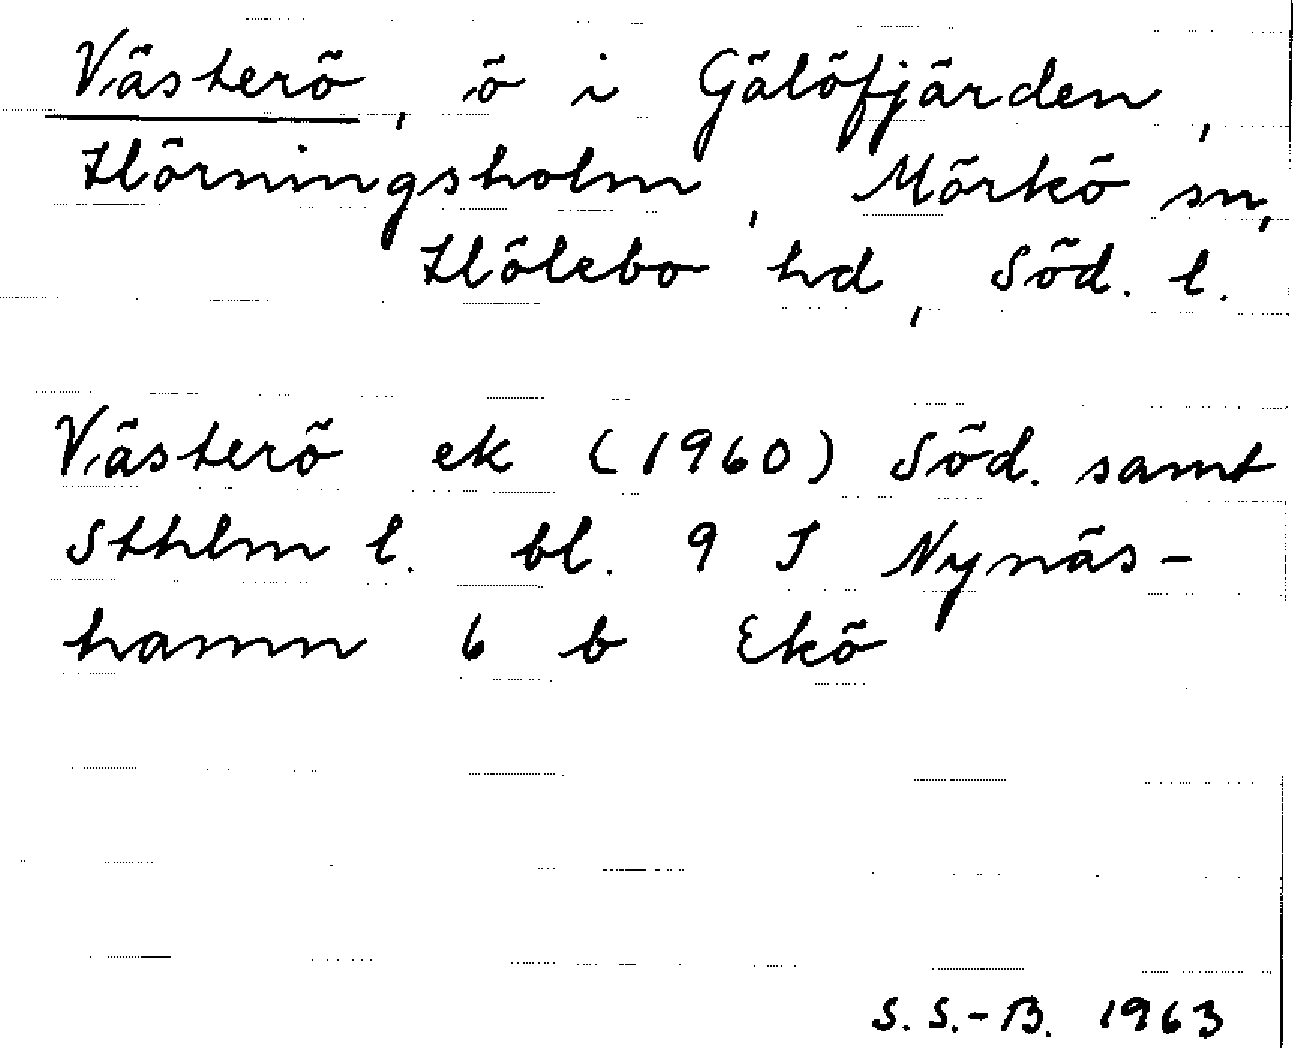 Västerö, ö i Gälöfjärden,
Hörningsholm, Mörkö sn,
Hölebo hd, Söd. l.
Västerö ek (1960) Söd. samt
Sthlm l. bl. 9 I Nynäs-
hamn 6 b Ekö
S. S.-B. 1963